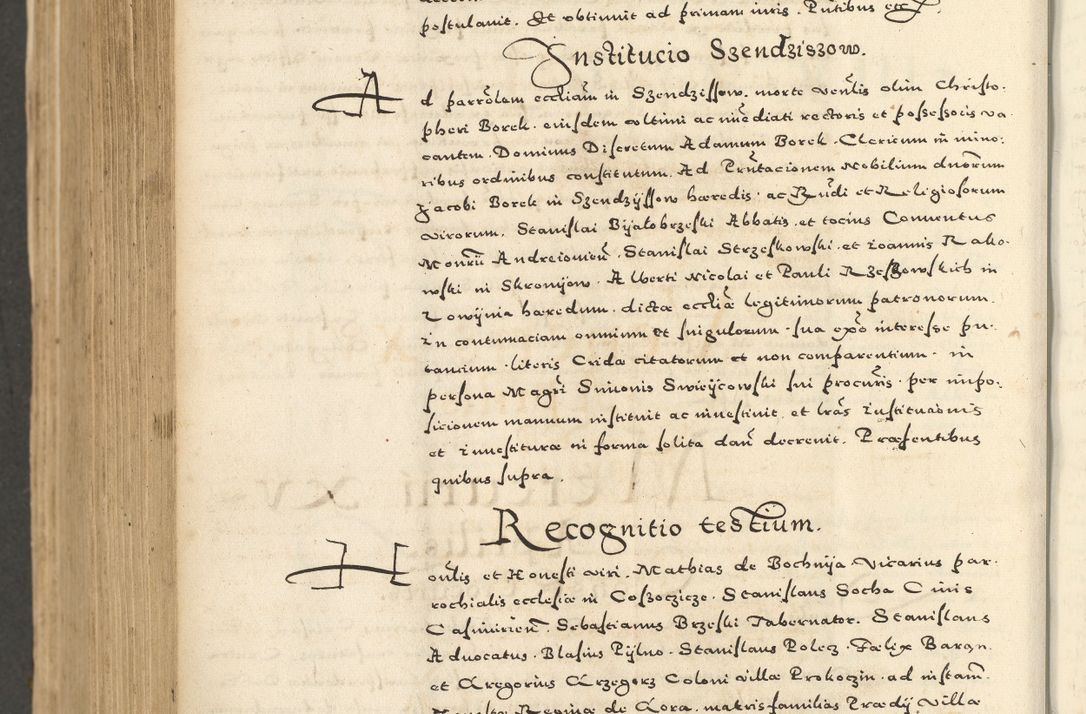 postulavit. Et obtinuit ad primam iuris. Pñtibus etc
Institucio Szendziszow.
Ad parrõlem eccliam in Szendzissow. morte venlis olim Christo-
pheri Borek. eiusdem ultimi ac imediati rectoris et possessoris va-
cantem. Dominus Discretum Adamum Borek. Clericum in mino-
ribus ordinibus constitutum. Ad Prñtacionem Nobilium dnorum
Jacobi Borek in Szendzyssow hæredis. ac Rñdi et Religiosorum
virorum. Stanislai Bijalobrzeski Abbatis. et tocius Conventus
Monrii Andreiovien. Stanislai Strzeskowski. et Ioannis Rako-
wski in Skronijow. Alberti Nicolai et Pauli Rzeszowskich in
Lowijnia hæredum. dictæ eccliæ legitimorum patronorum.
In contumaciam omnium et singulorum. sua exõ interesse pu-
tancium. literis Cridæ citatorum et non comparentium. in
persona Magri Simonis Swieijcowski sui procuris. per impo-
sicionem manuum instituit ac investivit. et lras institucionis
et investituræ in forma solita dari decrevit. Præsentibus
quibus supra.
Recognitio testium.
Honlis et Honesti viri. Mathias de Bochnija Vicarius par-
rochialis ecclesiæ in Coszoczicze. Stanislaus Socha Civis
Casimirien. Sebastianus Brzeski Tabernator. Stanislaus
Advocatus. Blasius Pijlno. Stanislaus Polecz. Fælix Baran.
et Gregorius Grzegorz Coloni villæ Prokoczin. ad instam
Honestæ Reginæ de Gora. matris familias Prædij villæ